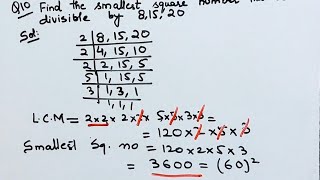 Q10 Find the smallest square number
divisible by 8,15,20
Sol:
2 | 8, 15, 20
2 | 4, 15, 10
2 | 2, 15, 5
5 | 1, 15, 5
3 | 1, 3, 1
1, 1, 1
L.C.M = 2×2 × 2× × 5× × 3× =
= 120× × ×
Smallest Sq. no = 120×2×5×3
= 3600 = (60)²